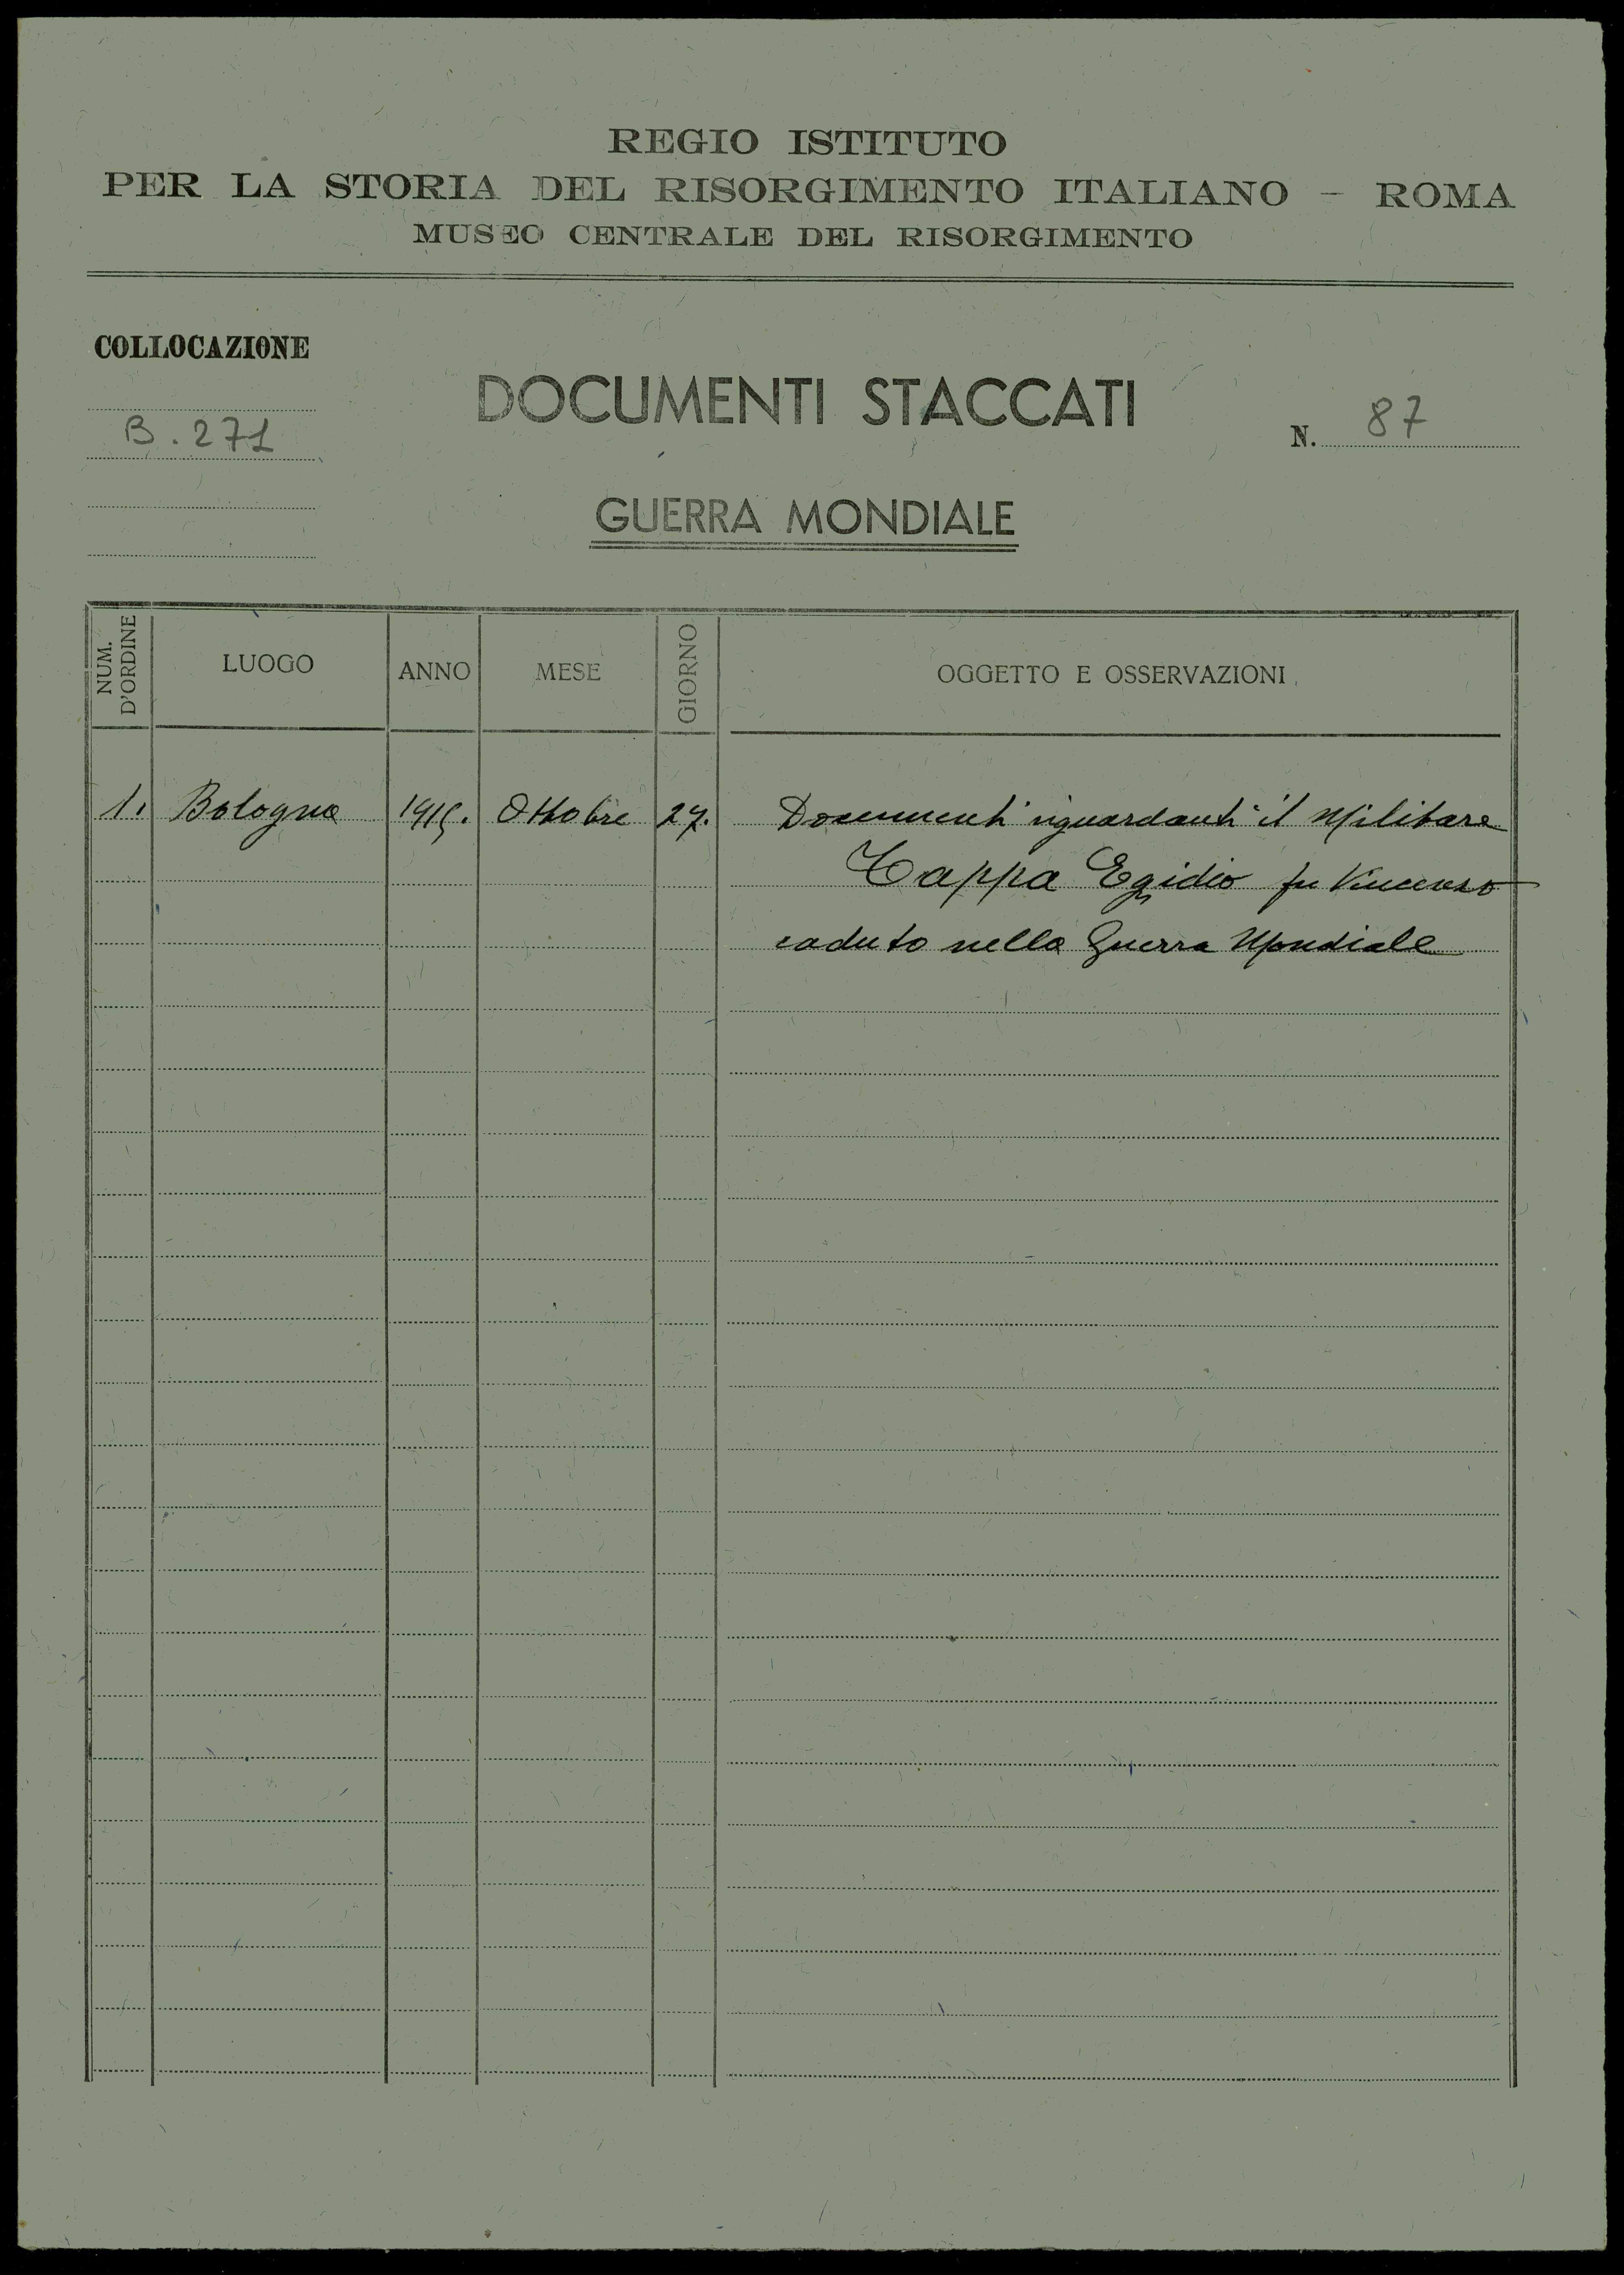 REGIO ISTITUTO
PER LA STORIA DEL RISORGIMENTO ITALIANO – ROMA
MUSEO CENTRALE DEL RISORGIMENTO
COLLOCAZIONE
B. 271
DOCUMENTI STACCATI
N. 87
GUERRA MONDIALE
NUM. D'ORDINE LUOGO ANNO MESE GIORNO OGGETTO E OSSERVAZIONI
1. Bologna 1915. Ottobre 27. Documenti riguardanti il Militare
Egidio fu Vincenzo
caduto nella Guerra Mondiale